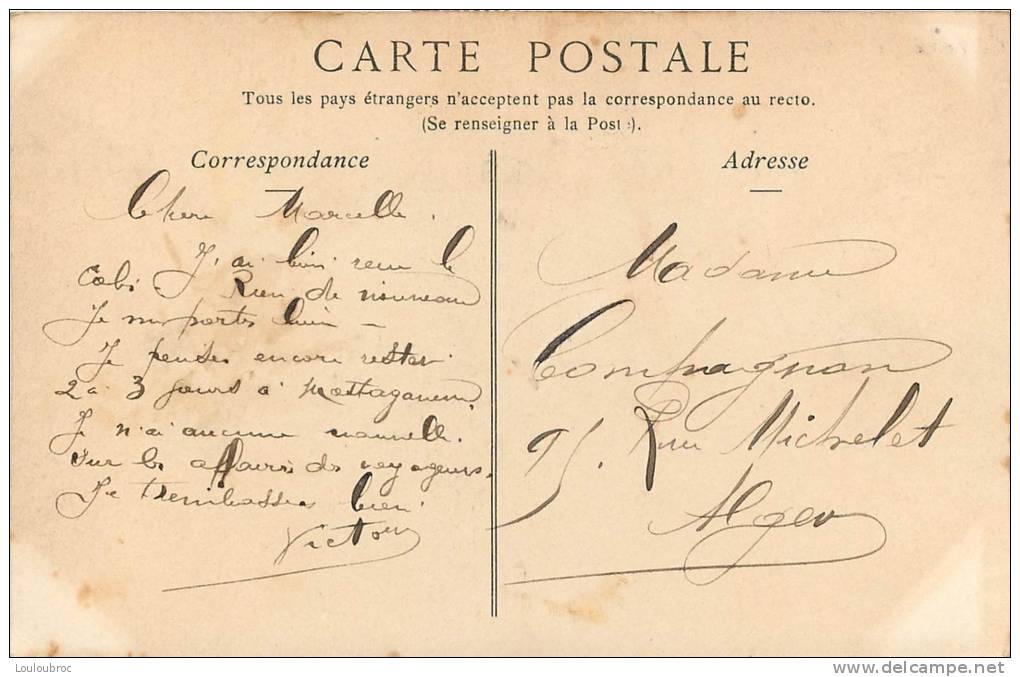 CARTE POSTALE
Tous les pays étrangers n'acceptent pas la correspondance au recto.
(Se renseigner à la Poste).
Correspondance
Chere Marcelle.
J'ai bien recu le
Colis. Rien de nouveau
Je me portes bien –
Je penses encore rester
2 à 3 jours à Mostaganem.
Je n'ai aucune nouvelle.
Sur les affaires de voyageurs.
Je t'embrasse bien
Victor
Adresse
Madame
Compagnon
95. Rue Michelet
Alger
Louloubroc
delcampe.net